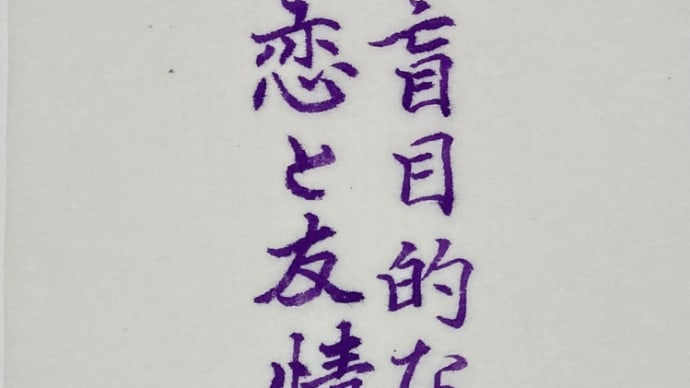 盲目的な
恋と友情